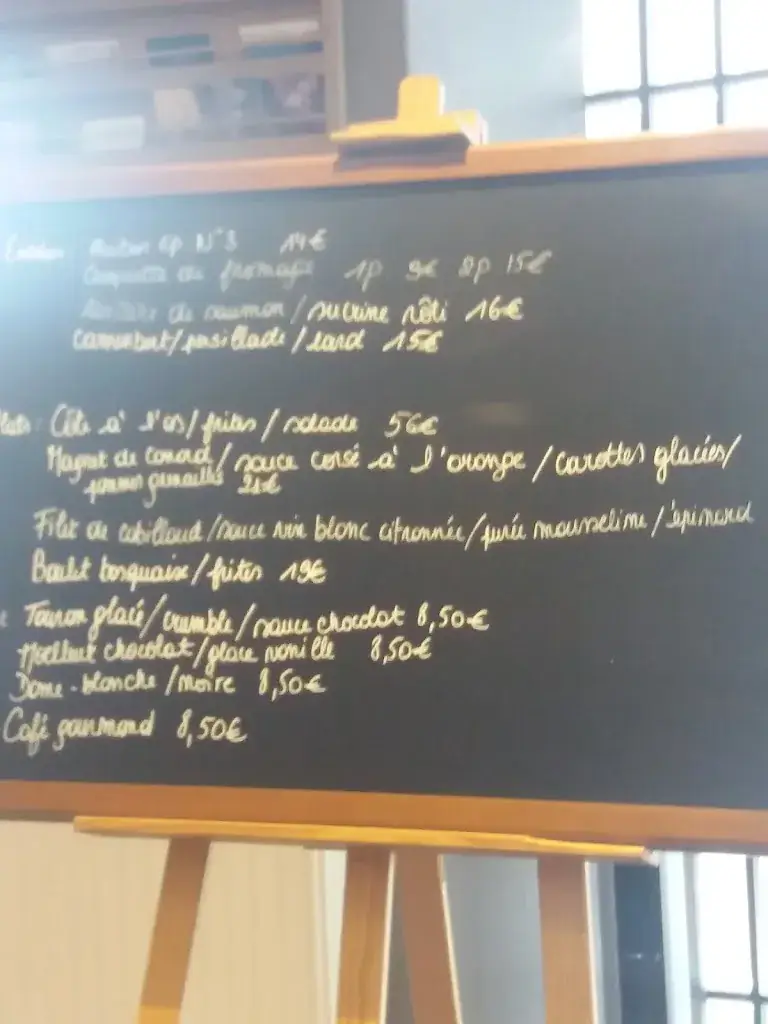 N°3 14€
fromage 1p 9€ 2p 15€
de saumon / sucrine rôti 16€
Camembert / persillade / lard 15€
Côte à l'os / frites / salade 56€
Magret de canard / sauce corsé à l'orange / carottes glacées /
pommes grenailles
Filet de cabillaud / sauce vin blanc citronnée / purée mousseline / épinard
Boulet / frites 19€
glacé / crumble / sauce chocolat 8,50€
Moelleux chocolat / glace vanille 8,50€
Dame-blanche / noire 8,50€
Café gourmand 8,50€